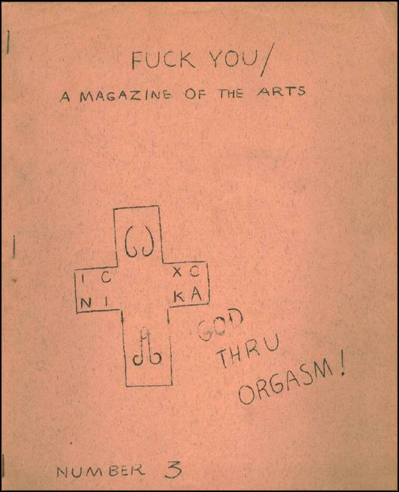 FUCK YOU/
A MAGAZINE OF THE ARTS
I C X C
N I K A
GOD
THRU
ORGASM!
NUMBER 3